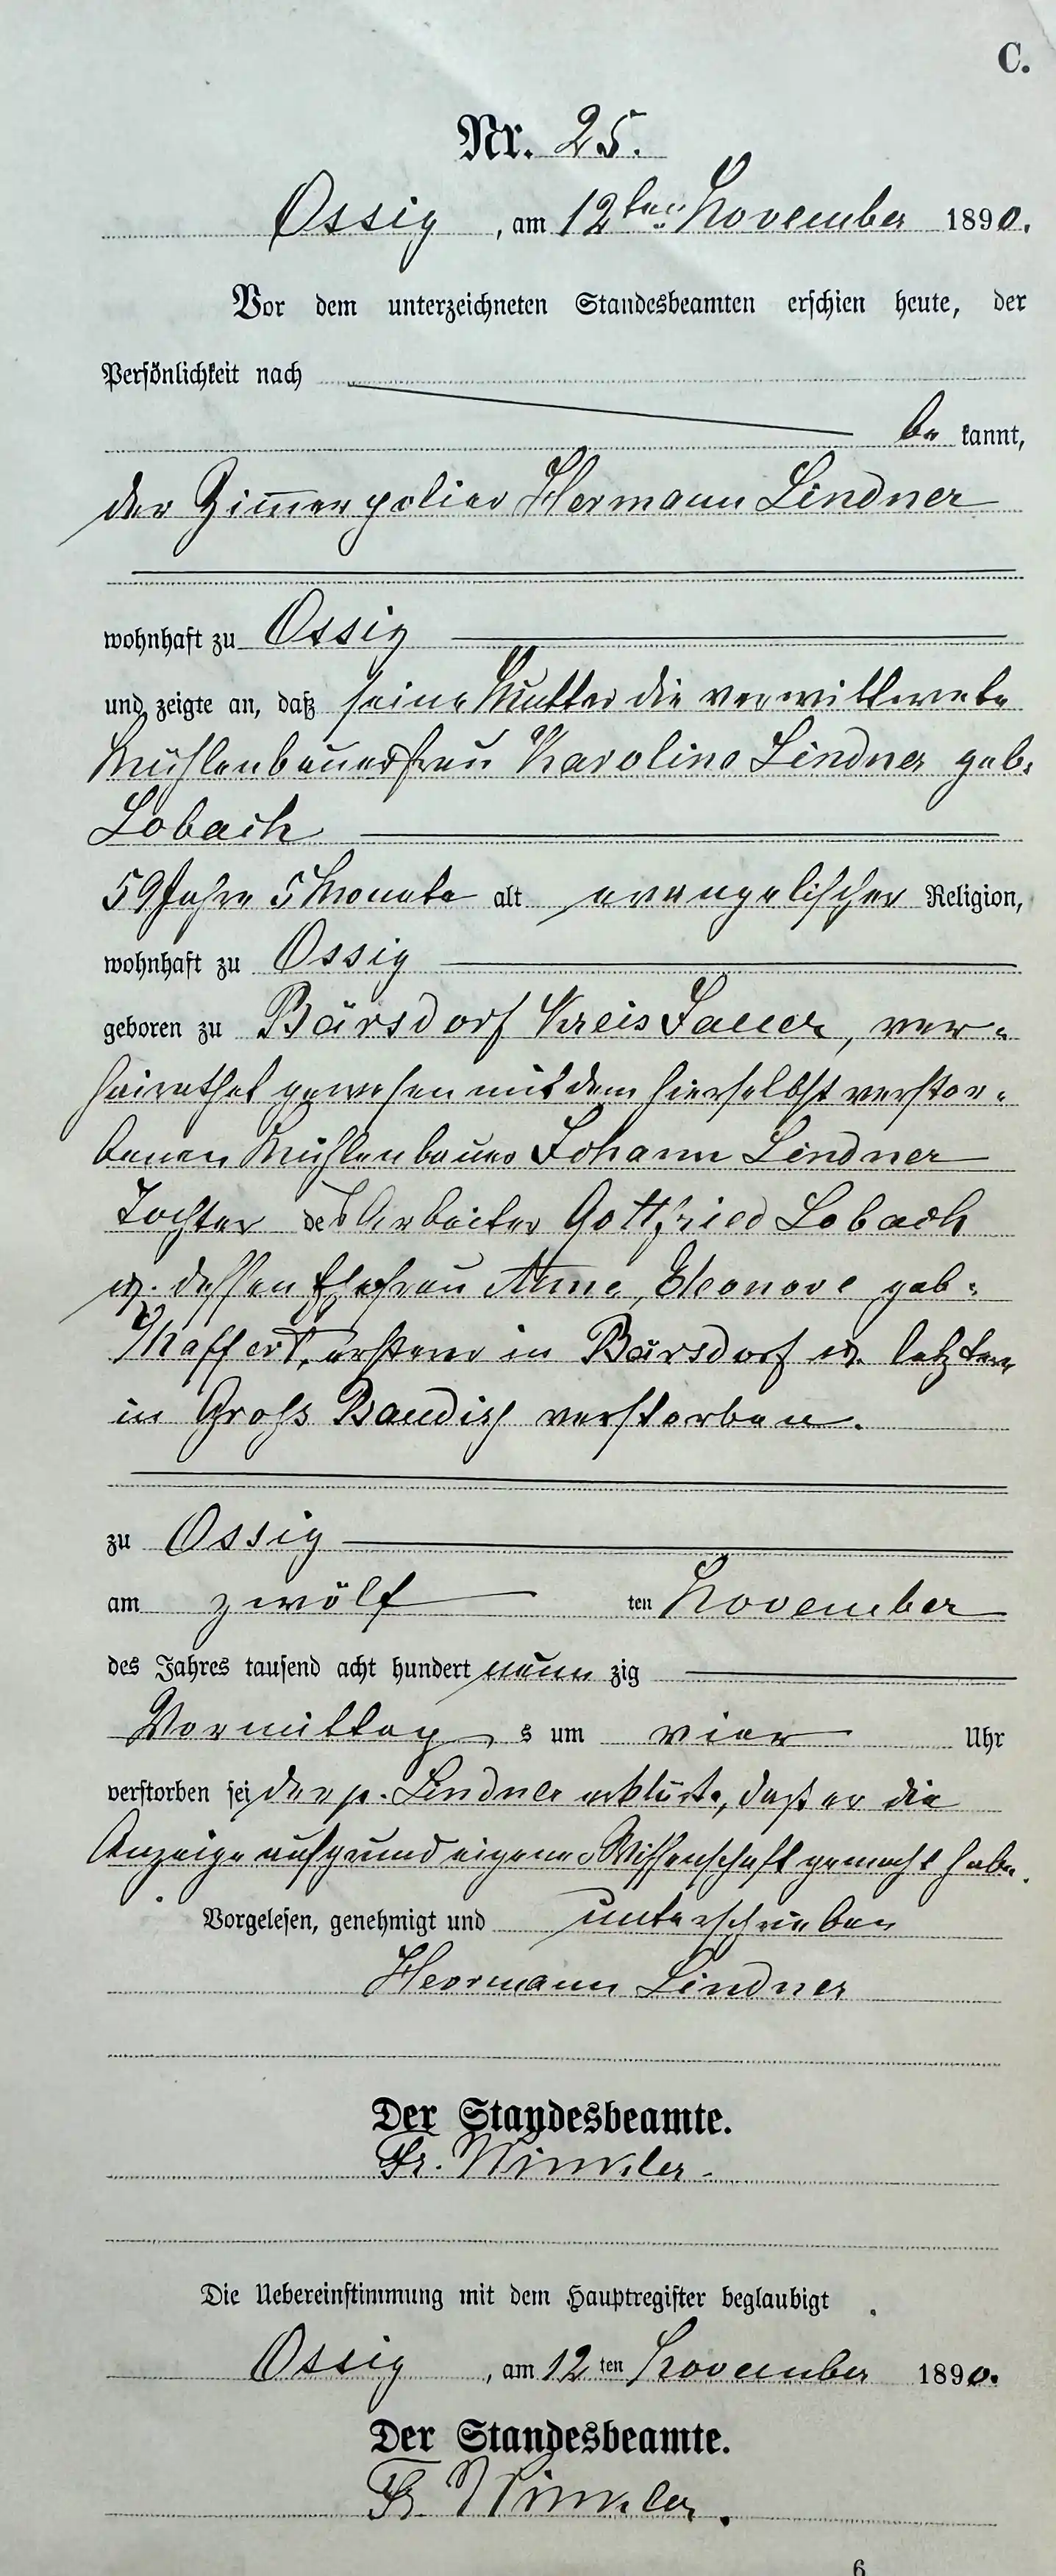 C.
Nr. 25.
Ossig, am 12ten November 1890.
Vor dem unterzeichneten Standesbeamten erschien heute, der
Persönlichkeit nach
be kannt,
der Zim̅erpolier Hermann Lindner
wohnhaft zu Ossig
und zeigte an, daß seine Mutter die verwittwete
Mühlenbauerfrau Karoline Lindner geb.
Lobach
59 Jahre 5 Monate alt evangelischer Religion,
wohnhaft zu Ossig
geboren zu Bärsdorf Kreis Jauer, ver-
heirathet gewesen mit dem hierselbst verstor-
benen Mühlenbauer Johann Lindner
Tochter des Arbeiter Gottfried Lobach
u. dessen Ehefrau Anne, Eleonore geb.
Kaffert, ersterer in Bärsdorf u. letztere
in Groß Baudiß verstorben.
zu Ossig
am zwölf ten November
des Jahres tausend acht hundert neun zig
Vormittag s um vier Uhr
verstorben sei der p. Lindner erklärte, daß er die
Anzeige aufgrund eigener Wissenschaft gemacht habe.
Vorgelesen, genehmigt und unterschrieben
Heormann Lindner
Der Standesbeamte.
Fr. Winkler.
Die Uebereinstimmung mit dem Hauptregister beglaubigt
Ossig, am 12 ten November 1890.
Der Standesbeamte.
Fr. Winkler.
6